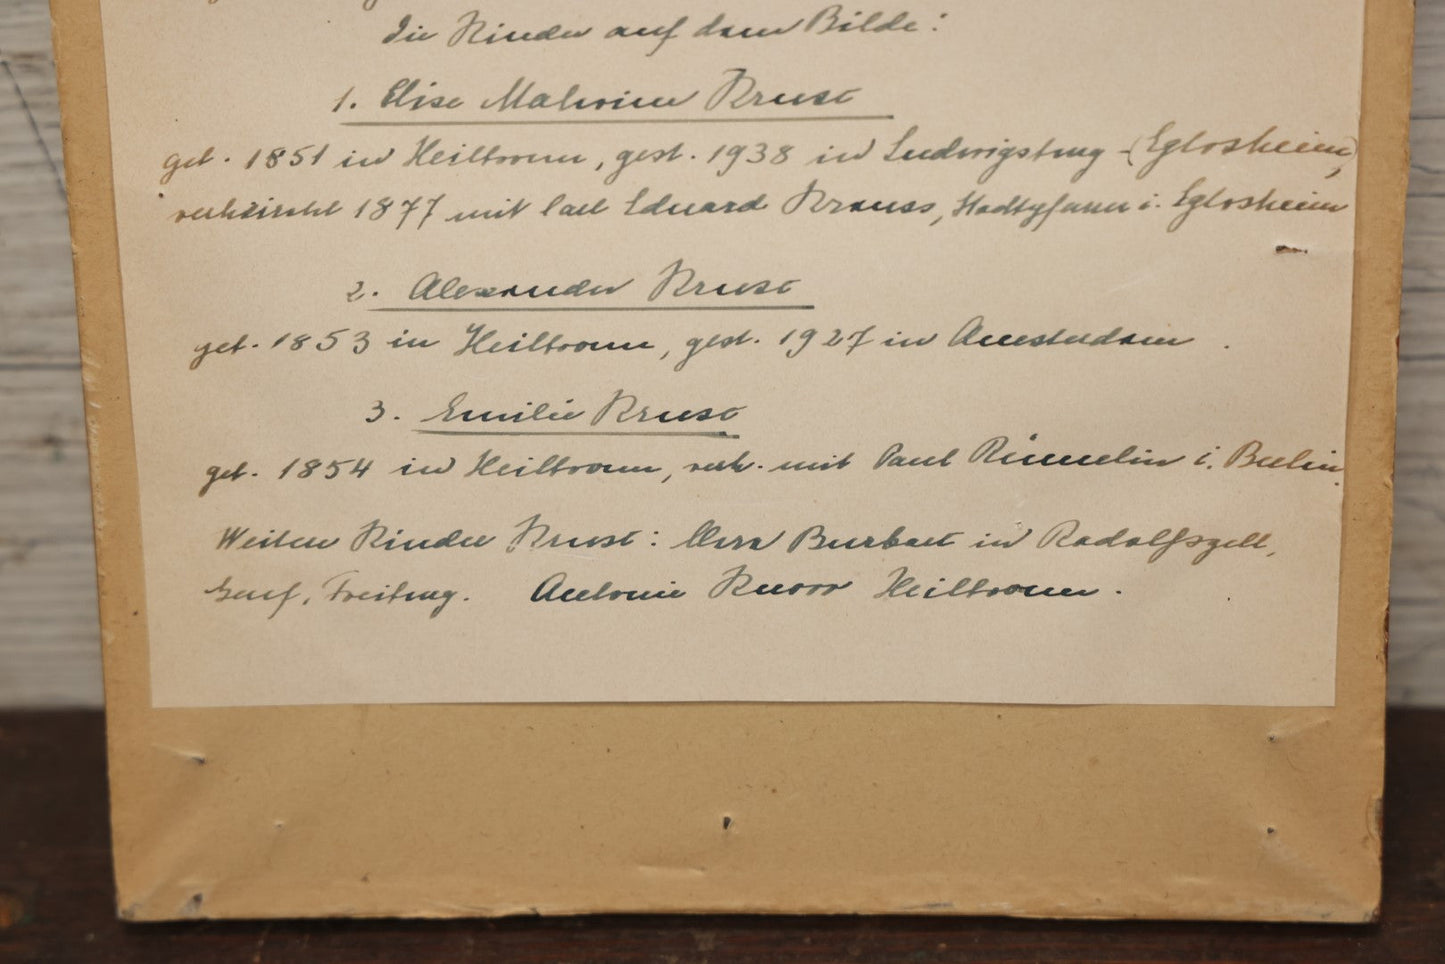 Die Kinder auf dem Bilde:
1. Elise Malwine Kruse
geb. 1851 in Heilbronn, gest. 1938 in Ludwigsburg-(Eglosheim),
verheiratet 1877 mit Carl Eduard Krauss, Stadtpfarrer i. Eglosheim
2. Alexander Kruse
geb. 1853 in Heilbronn, gest. 1927 in Amsterdam.
3. Emilie Kruse
geb. 1854 in Heilbronn, verh. mit Paul Rümelin i. Berlin.
Weitere Kinder Kruse: in Radolfszell,
Genf, Freiburg. Antonie Knorr Heilbronn.